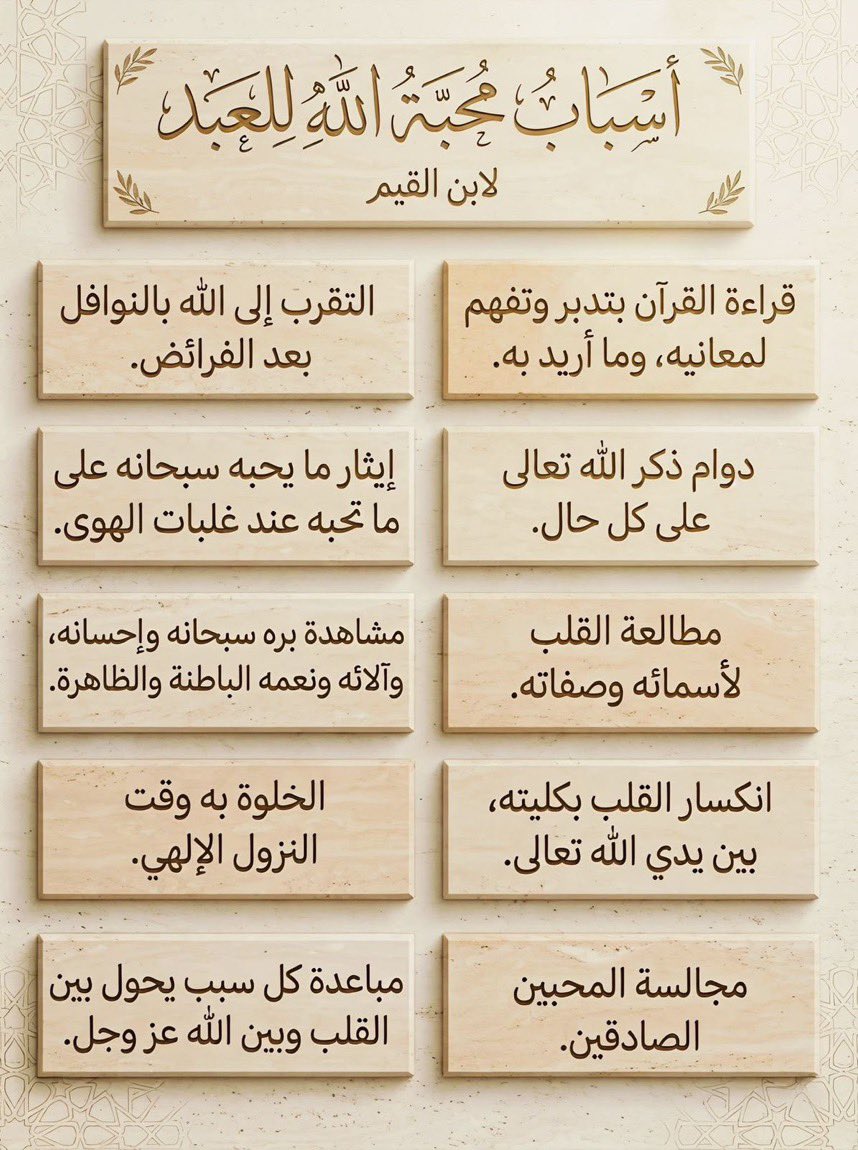 أَسْبَابُ مُحَبَّةُ اللَّهِ لِلعَبَد
لابن القيم
قراءة القرآن بتدبر وتفهم
لمعانيه، وما أريد به.
التقرب إلى الله بالنوافل
بعد الفرائض.
دوام ذكر الله تعالى
على كل حال.
إيثار ما يحبه سبحانه على
ما تحبه عند غلبات الهوى.
مطالعة القلب
لأسمائه وصفاته.
مشاهدة بره سبحانه وإحسانه،
وآلائه ونعمه الباطنة والظاهرة.
انكسار القلب بكليته،
بين يدي الله تعالى.
الخلوة به وقت
النزول الإلهي.
مجالسة المحبين
الصادقين.
مباعدة كل سبب يحول بين
القلب وبين الله عز وجل.